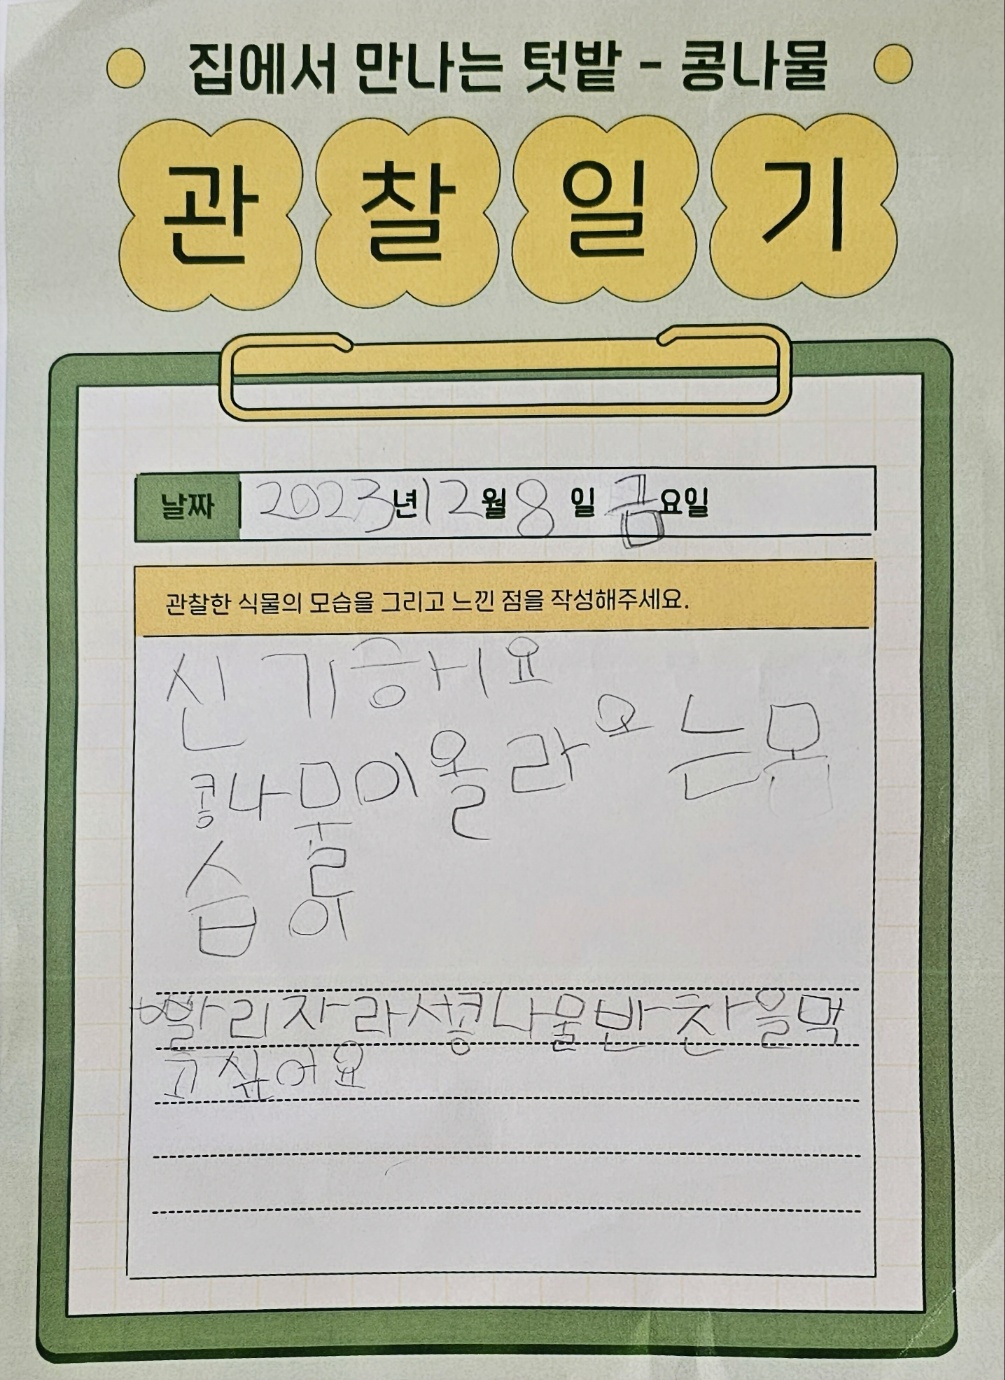 집에서 만나는 텃밭 - 콩나물
관찰일기
날짜 2023년 12월 8일 금요일
관찰한 식물의 모습을 그리고 느낀 점을 작성해주세요.
신기긍해요
콩나물이올라요는몸
습을이
빨리자라서콩나물반찬을먹
고싶어요